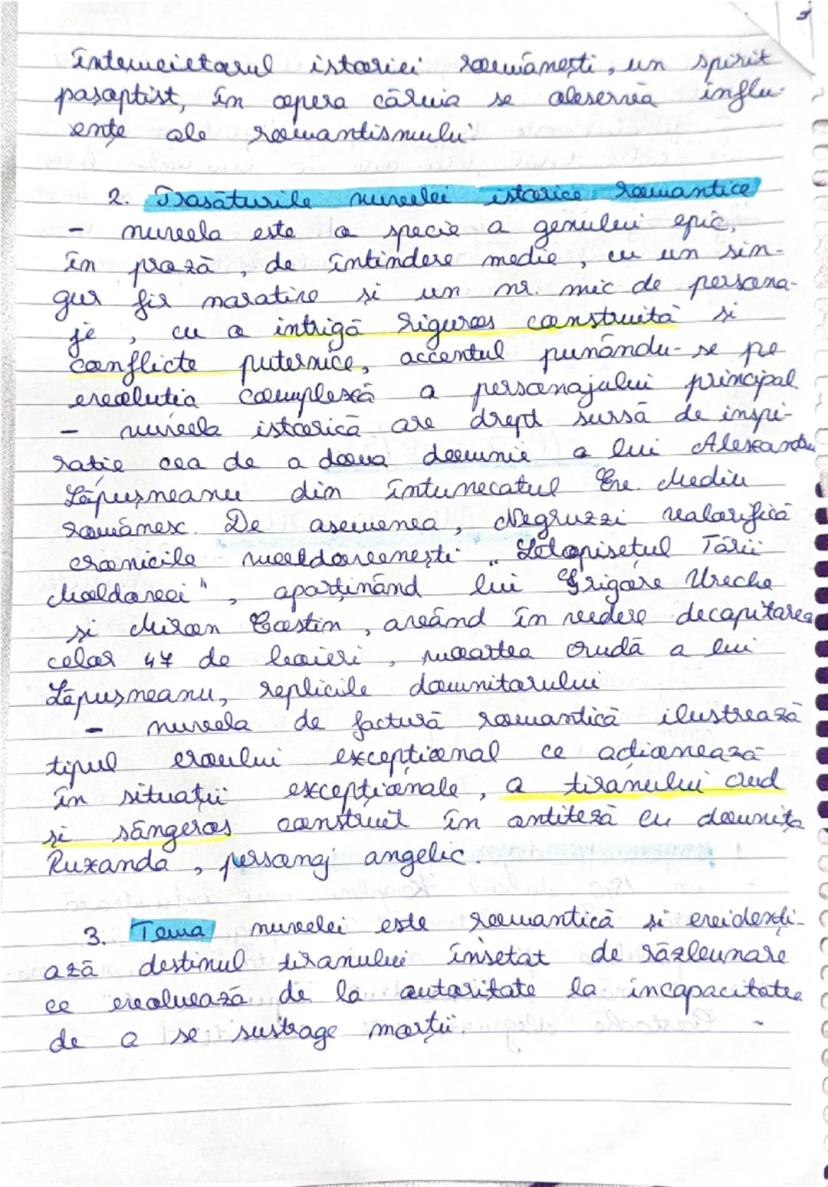 întemeietorul istoriei românești, un spirit
pașoptist, în opera căruia se observă influ-
ențe ale romantismului
2. Trăsăturile nuvelei istorice romantice
- nuvela este o specie a genului epic,
în proză, de întindere medie, cu un sin-
gur fir narativ și un nr. mic de persona-
je, cu o intrigă riguros construită și
conflicte puternice, accentul punându-se pe
evoluția complexă a personajului principal
- nuvela istorică are drept sursă de inspi-
rație cea de a doua domnie a lui Alexandru
Lăpușneanu din întunecatul Ev. Mediu
românesc. De asemenea, Negruzzi valorifică
cronicile moldovenești "Letopisețul Țării
Moldovei", aparținând lui Grigore Ureche
și Miron Costin, având în vedere decapitarea
celor 47 de boieri, moartea crudă a lui
Lăpușneanu, replicile domnitorului
- nuvela de factură romantică ilustrează
tipul eroului excepțional ce acționează
în situații excepționale, a tiranului crud
și sângeros construit în antiteză cu domnița
Ruxanda, personaj angelic
3. Tema nuvelei este romantică și evidenți-
ază destinul tiranului însetat de răzbunare
ce evoluează de la autoritate la incapacitatea
de a se sustrage morții -